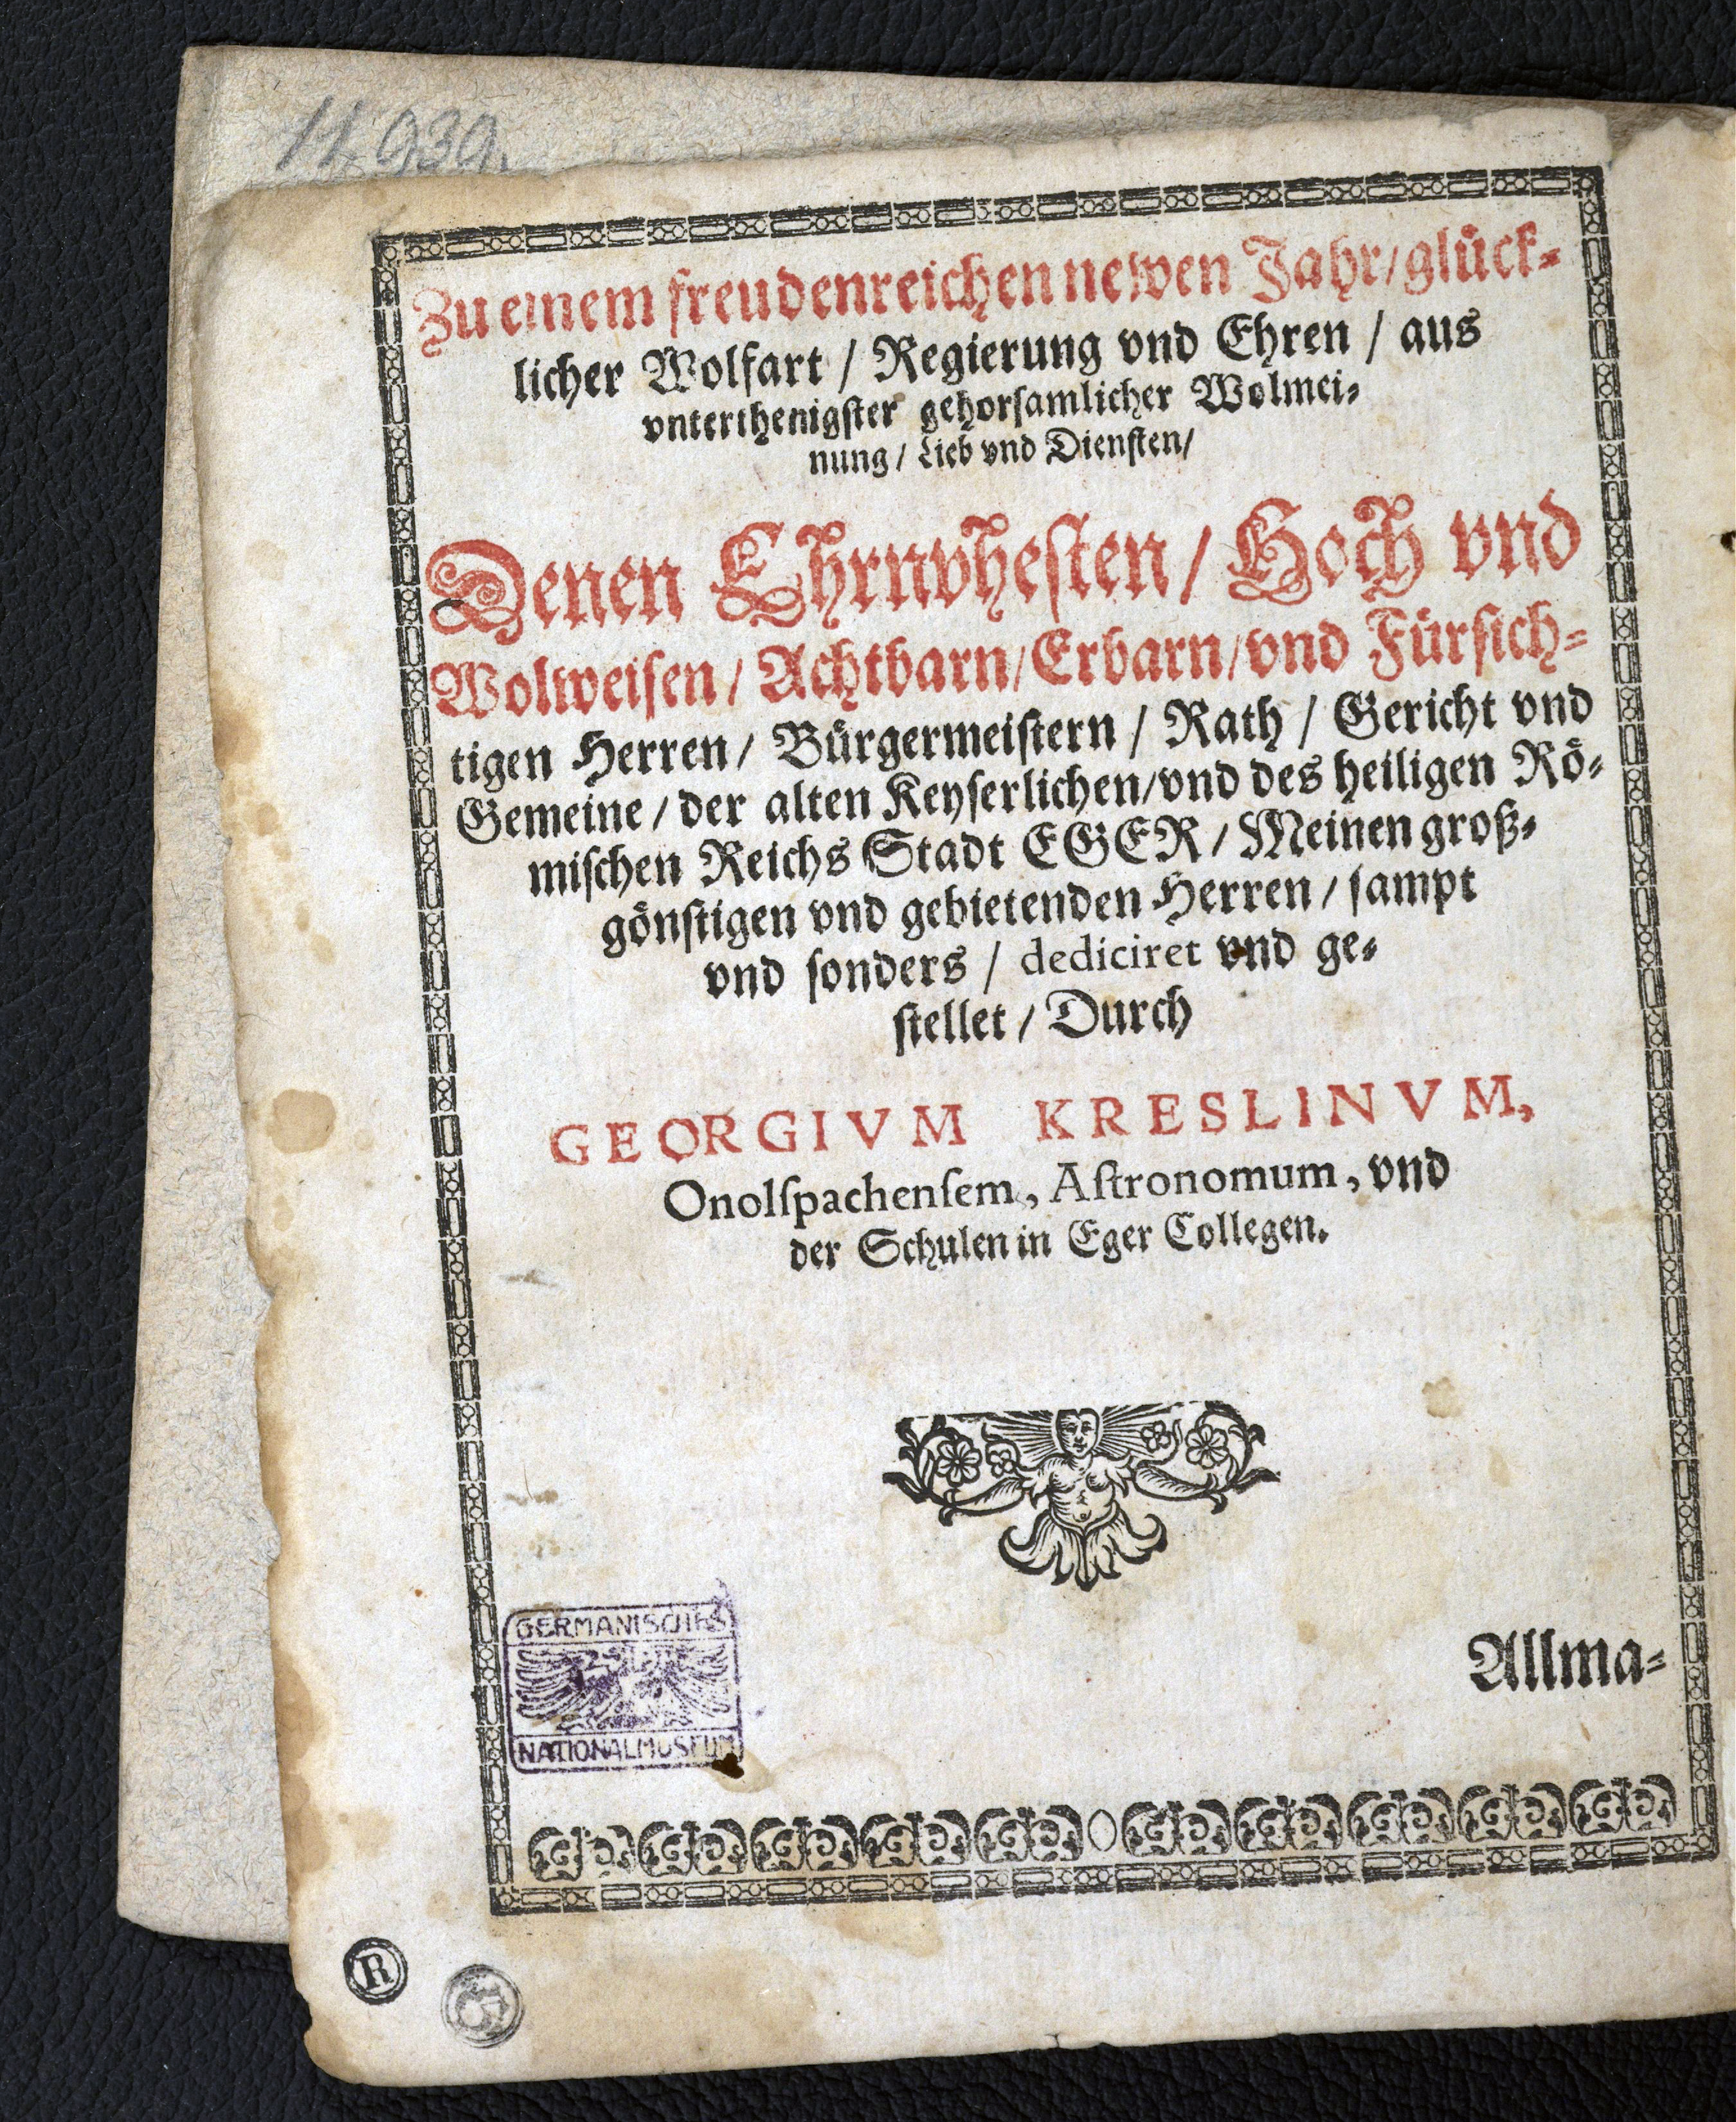 11.939.
Zu einem freudenreichen newen Jahr/ glück-
licher Wolfart / Regierung vnd Ehren / aus
vnterthenigster gehorsamlicher Wolmei-
nung / Lieb vnd Diensten/
Denen Ehrnvhesten / Hoch vnd
Wolweisen / Achtbarn / Erbarn / vnd Fürsich-
tigen Herren / Bürgermeistern / Rath / Gericht vnd
Gemeine / der alten Keyserlichen / vnd des heiligen Rö-
mischen Reichs Stadt EGER / Meinen groß-
gönstigen vnd gebietenden Herren / sampt
vnd sonders / dediciret vnd ge-
stellet / Durch
GEORGIVM KRESLINVM,
Onolſpachenſem, Aſtronomum, vnd
der Schulen in Eger Collegen.
Allma-
GERMANISCHES
NATIONALMUSEUM
R